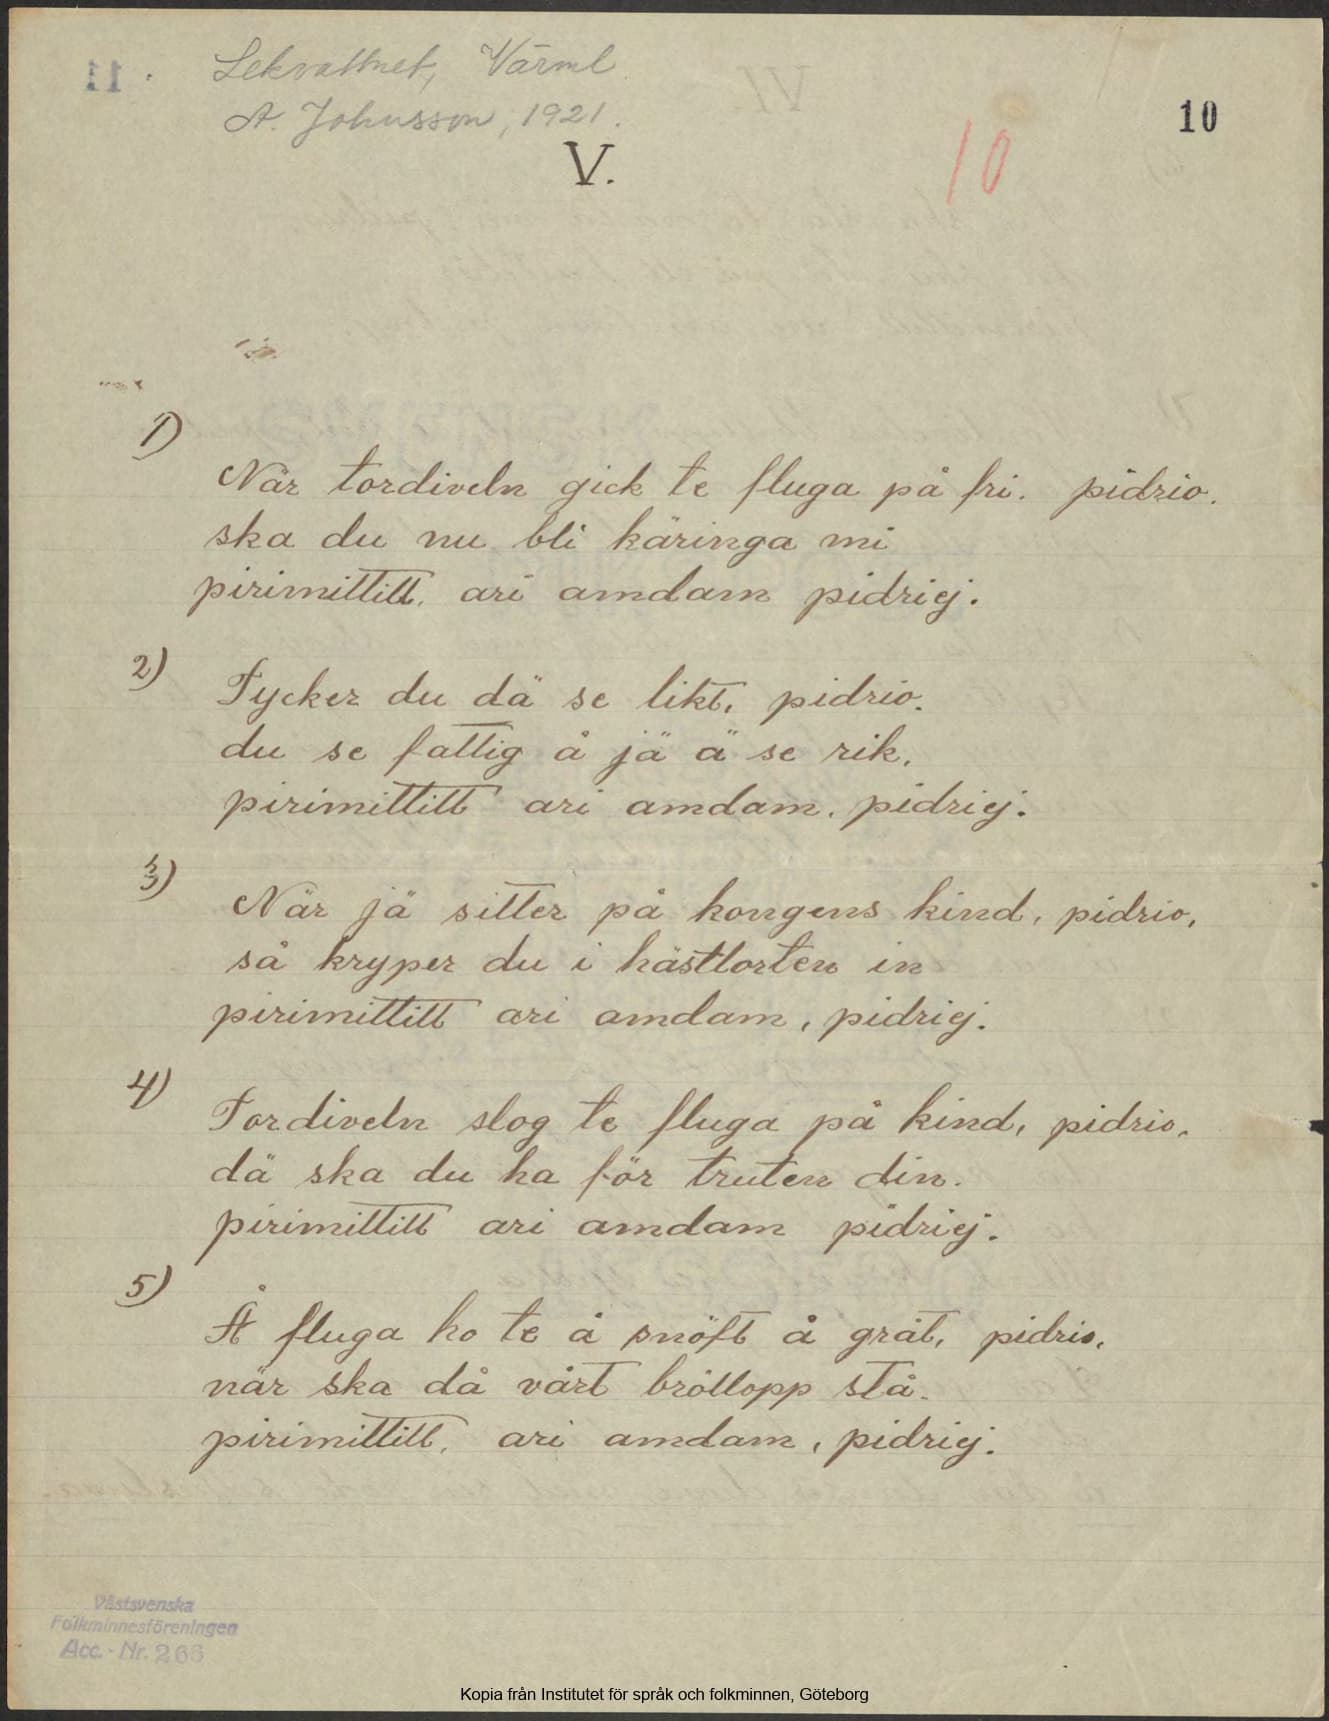 Lekvattnet, Värml
A. Johnsson, 1921.
10
V.
10
1)
När tordiveln gick te fluga på fri. pidrio.
ska du nu bli käringa mi
pirimittitt. ari amdam pidriej.
2)
Tycker du dä se likt, pidrio.
du se fattig å jä ä se rik,
pirimittitt ari amdam. pidriej.
3)
När jä sitter på kongens kind, pidrio,
så kryper du i hästlorten in
pirimittitt ari amdam, pidriej.
4)
Tordiveln slog te fluga på kind, pidrio.
dä ska du ha för truten din.
pirimittitt ari amdam pidriej.
5)
Å fluga ho te å snöft å gråt, pidrio,
när ska då vårt bröllopp stå.
pirimittitt. ari amdam, pidriej.
Västsvenska
Folkminnesföreningen
Acc.-Nr. 266
Kopia från Institutet för språk och folkminnen, Göteborg